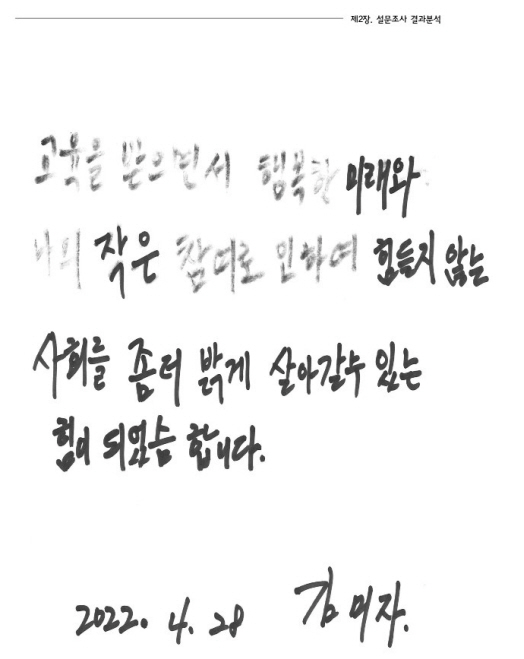 제2장. 설문조사 결과분석
교육을 받으면서 행복한 미래와
나의 작은 참여로 인하여 힘들지 않는
사회를 좀더 밝게 살아갈수 있는
힘이 되였슴 합니다.
2022. 4. 28 김미자.